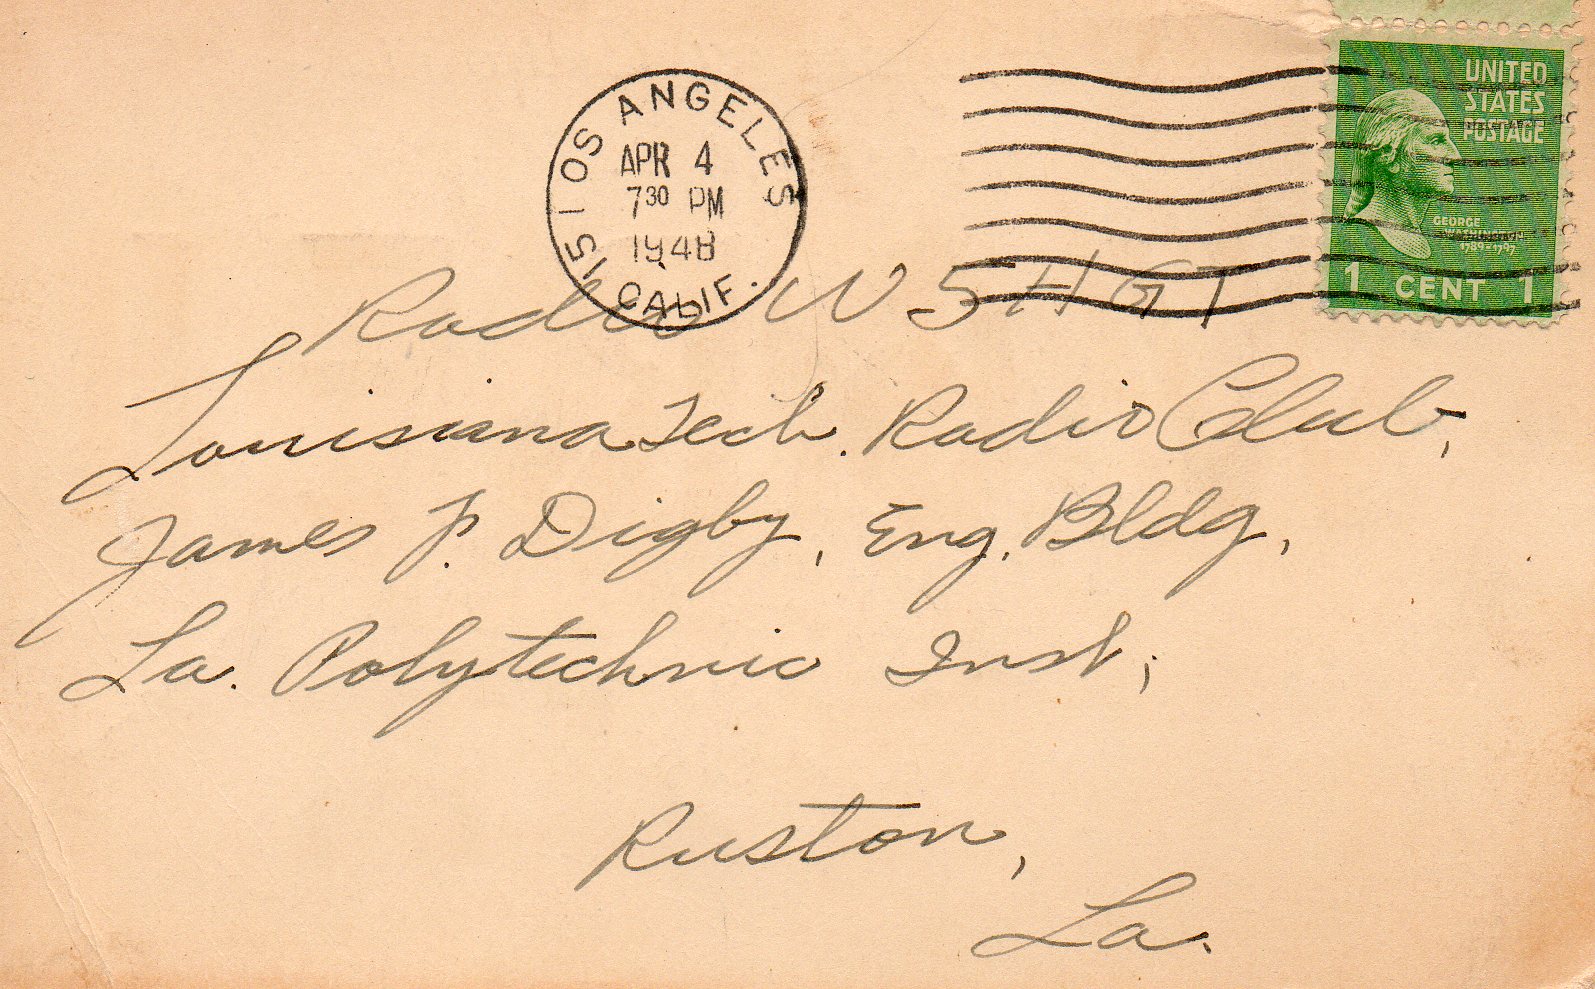 LOS ANGELES 15
APR 4
7 30 PM
1948
CALIF.
UNITED
STATES
POSTAGE
GEORGE
WASHINGTON
1789-1797
1 CENT 1
Radio W5HGT
Louisiana Tech. Radio Club,
James P. Digby, Eng. Bldg,
La. Polytechnic Inst,
Ruston,
La.